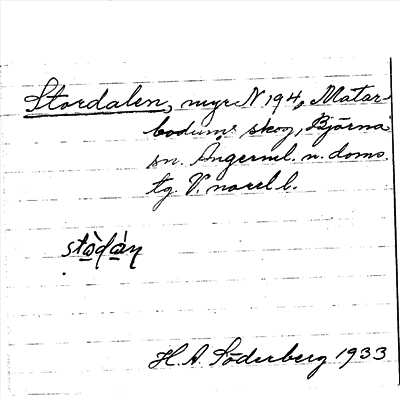 Stordalen, myr N 194, Matar-
bodums skog, Björna
sn. Ångerml. n. doms.
tg V. norrl l.
stòdàn
H. A. Söderberg 1933